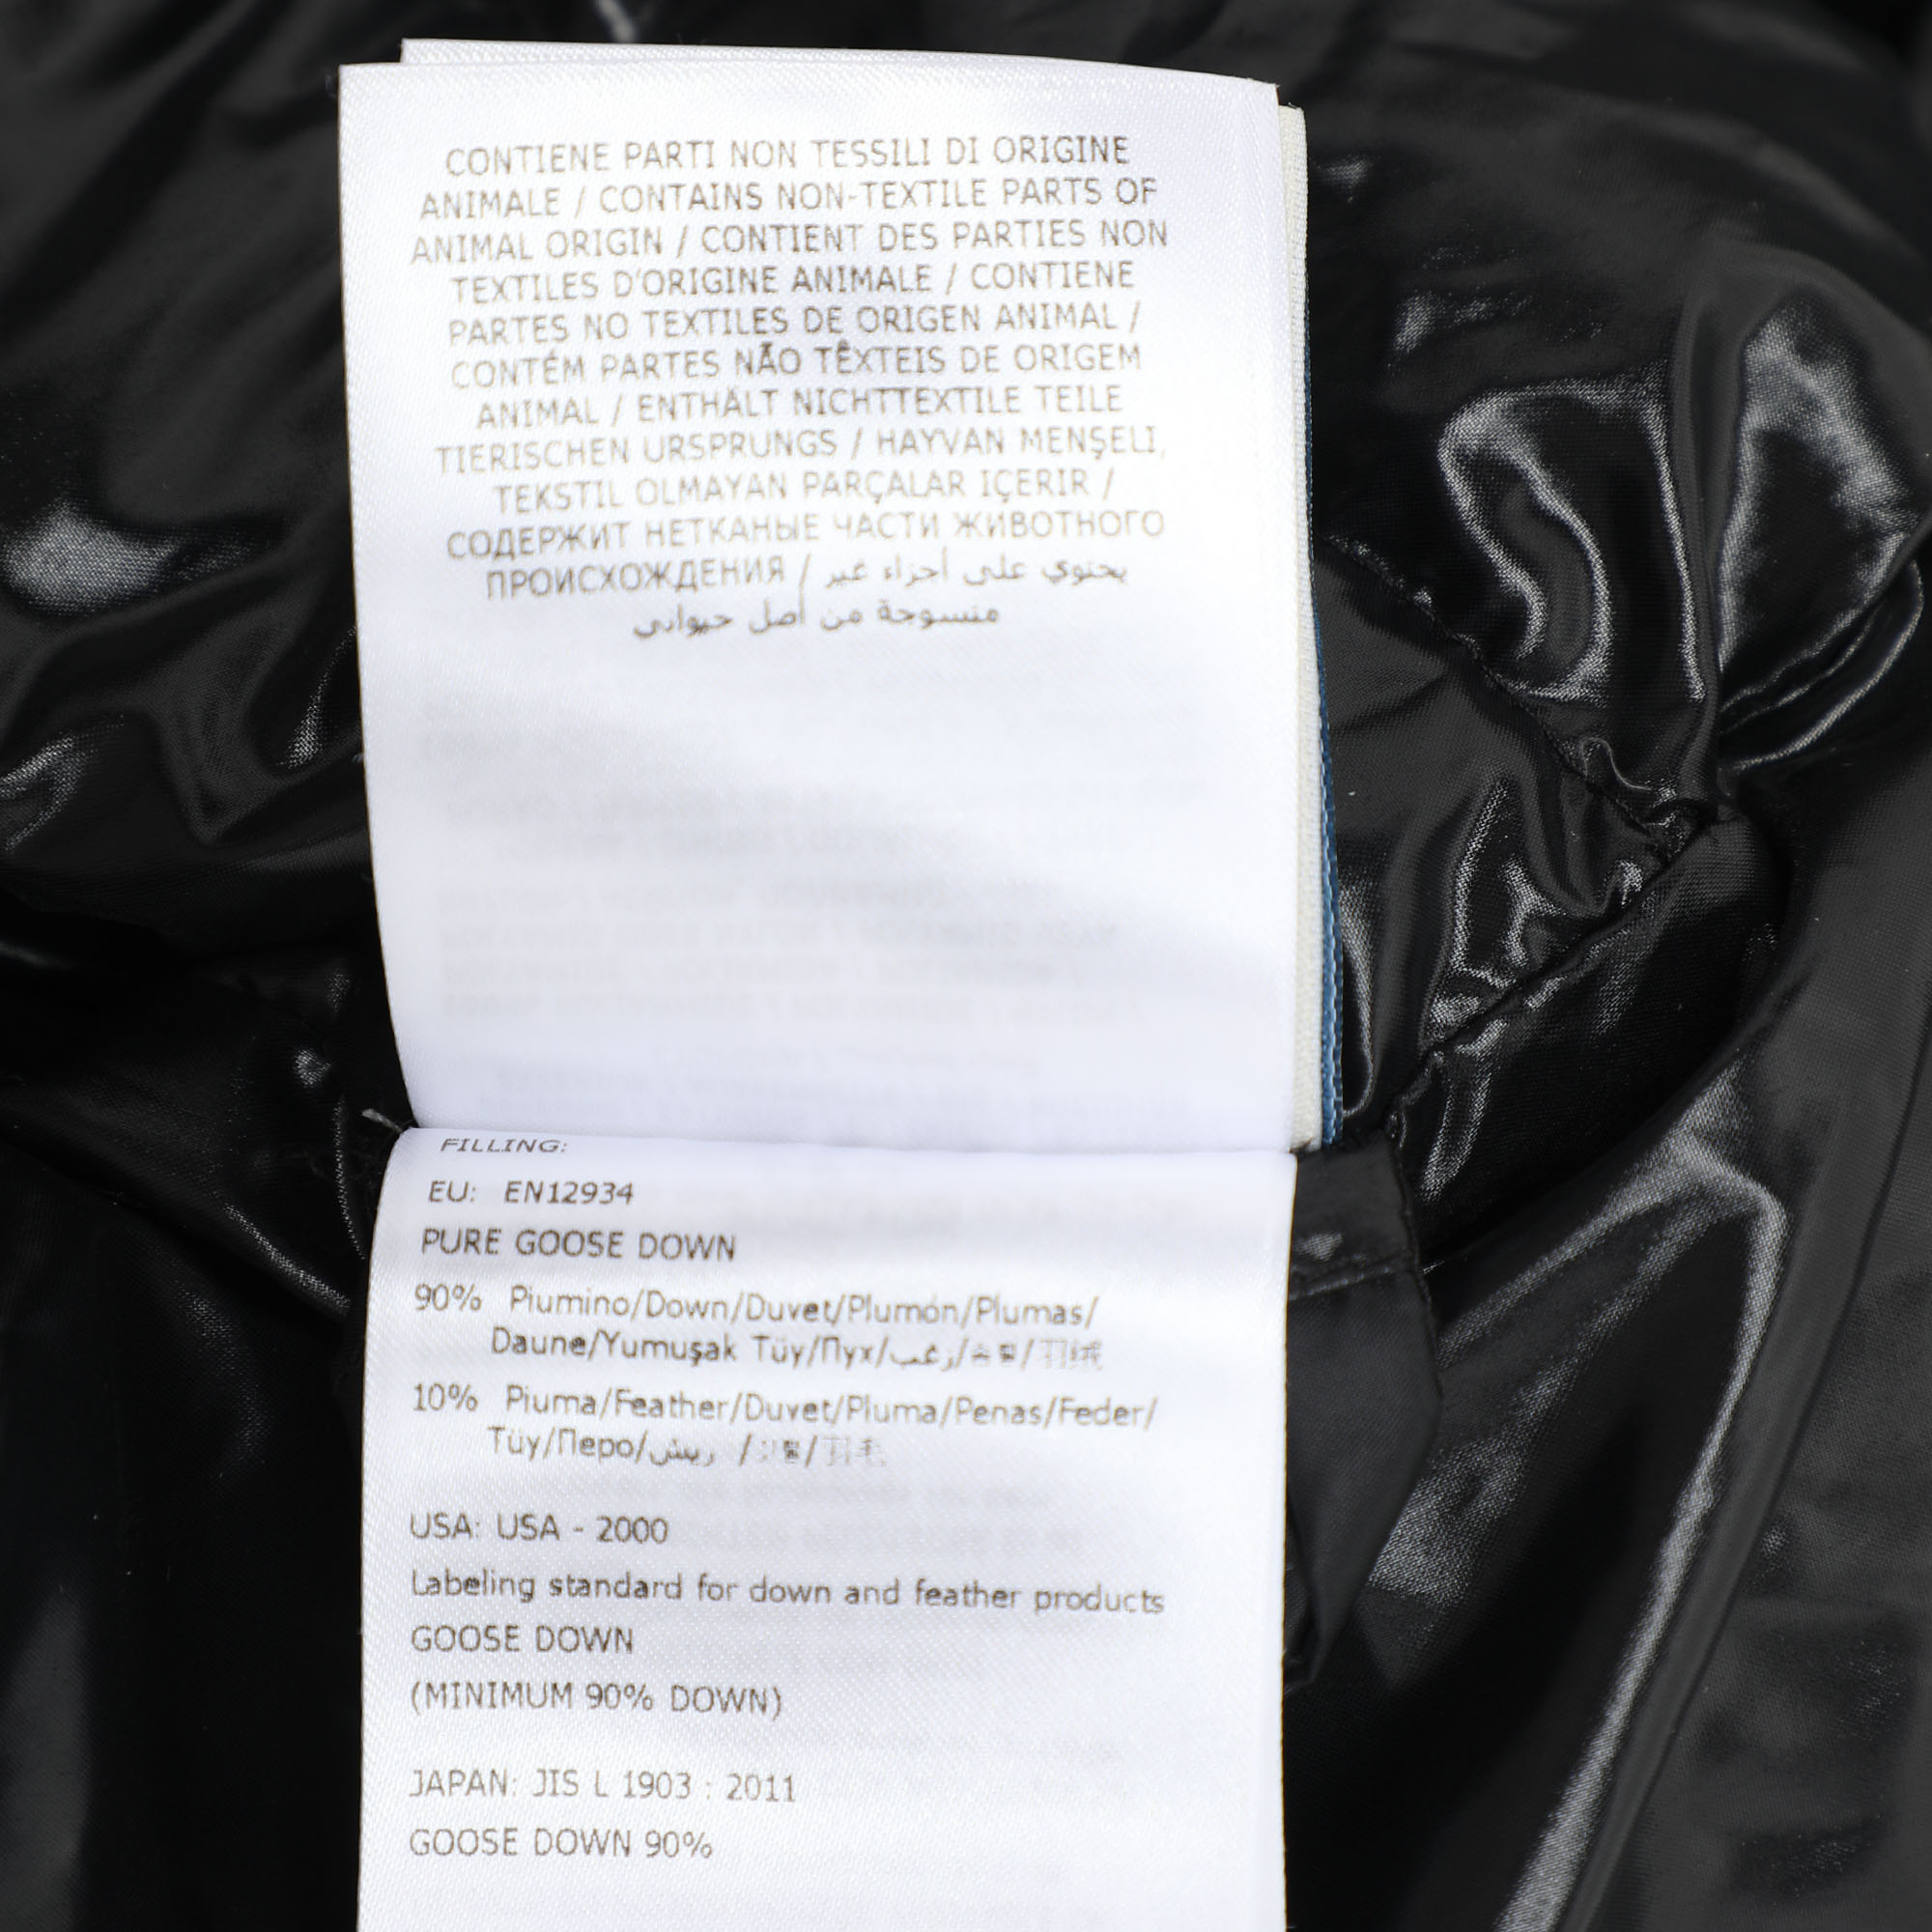 CONTIENE PARTI NON TESSILI DI ORIGINE
ANIMALE / CONTAINS NON-TEXTILE PARTS OF
ANIMAL ORIGIN / CONTIENT DES PARTIES NON
TEXTILES D'ORIGINE ANIMALE / CONTIENE
PARTES NO TEXTILES DE ORIGEN ANIMAL /
CONTÉM PARTES NÃO TÊXTEIS DE ORIGEM
ANIMAL / ENTHÄLT NICHTTEXTILE TEILE
TIERISCHEN URSPRUNGS / HAYVAN MENŞELI,
TEKSTIL OLMAYAN PARÇALAR IÇERIR /
СОДЕРЖИТ НЕТКАНЫЕ ЧАСТИ ЖИВОТНОГО
ПРОИСХОЖДЕНИЯ / يحتوي على أجزاء غير
منسوجة من أصل حيواني
FILLING:
EU: EN12934
PURE GOOSE DOWN
90% Piumino/Down/Duvet/Plumón/Plumas/
Daune/Yumuşak Tüy/Пух/زغب/솜털/羽绒
10% Piuma/Feather/Duvet/Pluma/Penas/Feder/
Tüy/Перо/ريش /깃털/羽毛
USA: USA - 2000
Labeling standard for down and feather products
GOOSE DOWN
(MINIMUM 90% DOWN)
JAPAN: JIS L 1903 : 2011
GOOSE DOWN 90%